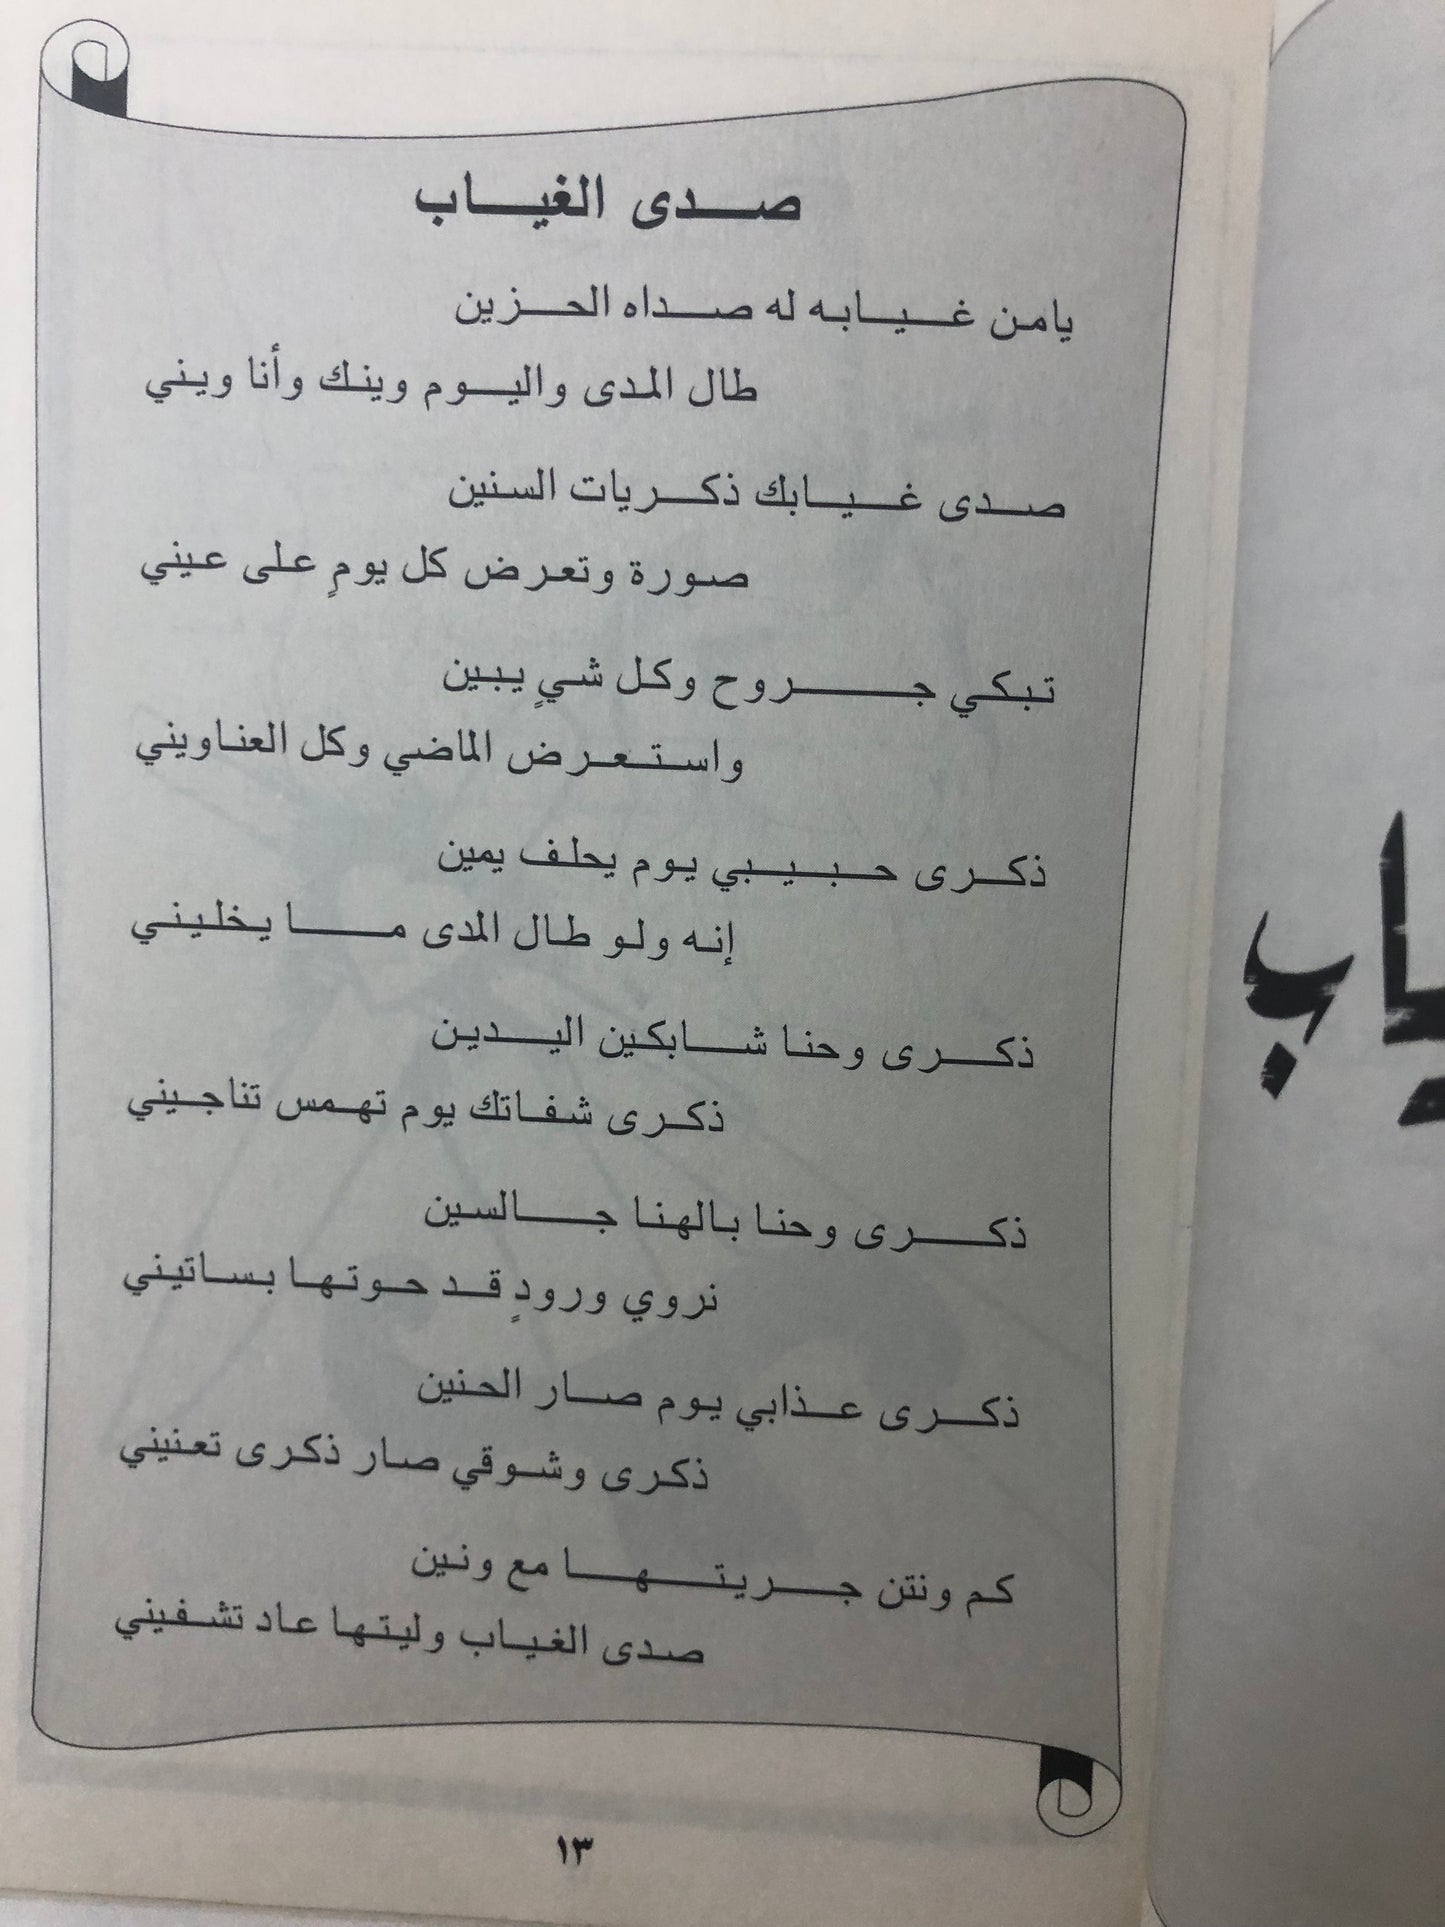 صدى الغياب
يامن غيابه له صداه الحزين
طال المدى واليوم وينك وأنا ويني
صدى غيابك ذكريات السنين
صورة وتعرض كل يومٍ على عيني
تبكي جروح وكل شيٍ يبين
واستعرض الماضي وكل العناويني
ذكرى حبيبي يوم يحلف يمين
إنه ولو طال المدى ما يخليني
ذكرى وحنا شابكين اليدين
ذكرى شفاتك يوم تهمس تناجيني
ذكرى وحنا بالهنا جالسين
نروي ورودٍ قد حوتها بساتيني
ذكرى عذابي يوم صار الحنين
ذكرى وشوقي صار ذكرى تعنيني
كم ونتن جريتها مع ونين
صدى الغياب وليتها عاد تشفيني
١٣